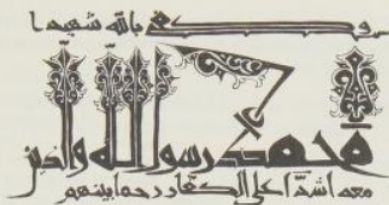 وكفى بالله شهيدا
محمد رسول الله والذين
معه اشدا على الكفار رحما بينهم